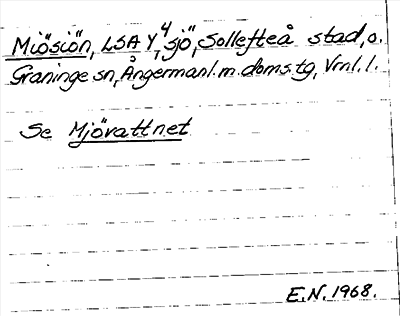 Miösiön, LSA Y, 4 sjö, Sollefteå stad, o.
Graninge sn, Ångermanl. m. doms. tg, Vrnl. l.
Se Mjövattnet
E.N. 1968.